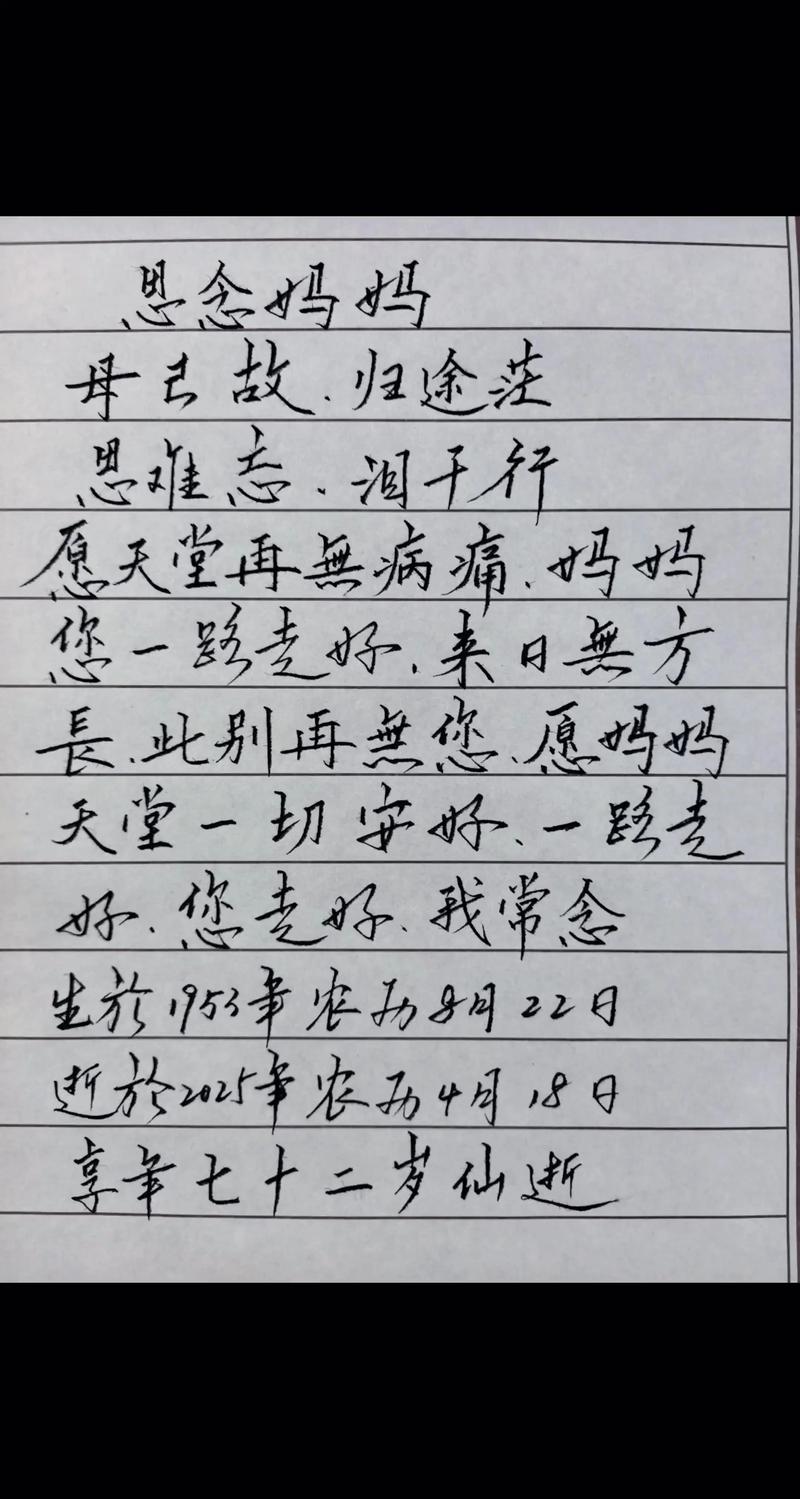 思念妈妈
母已故、归途茫
恩难忘、泪千行
愿天堂再無病痛、妈妈
您一路走好、来日無方
長、此别再無您、愿妈妈
天堂一切安好、一路走
好、您走好、我常念
生於1953年农历8月22日
逝於2025年农历4月18日
享年七十二岁仙逝